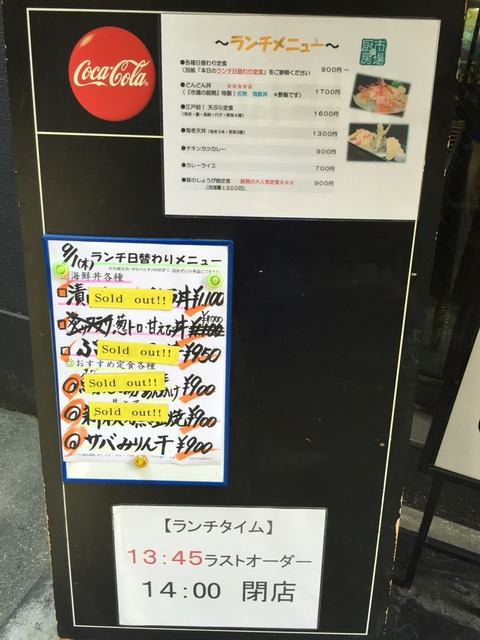 Coca-Cola
～ランチメニュー～
市場厨房
●各種日替わり定食
(別紙「本日のランチ日替わり定食」をご参照ください
900円～
●どんどん丼 ☆☆☆☆☆
(『市場の厨房』特製！名物 海鮮丼 *酢飯です)
1700円
●江戸前！天ぷら定食
1600円
●海老天丼
1300円
●チキンカツカレー
900円
●カレーライス
700円
●豚のしょうが焼定食 厨房の大人気定食☆☆☆
900円
9/1(木) ランチ日替わりメニュー
海鮮丼各種
漬 Sold out!! 丼 ¥1,100
葱トロ・甘えび丼
Sold out!! ¥950
◎おすすめ定食各種
Sold out!! あんかけ ¥900
Sold out!! 塩焼 ¥900
サバみりん干 ¥900
【ランチタイム】
13:45ラストオーダー
14:00 閉店